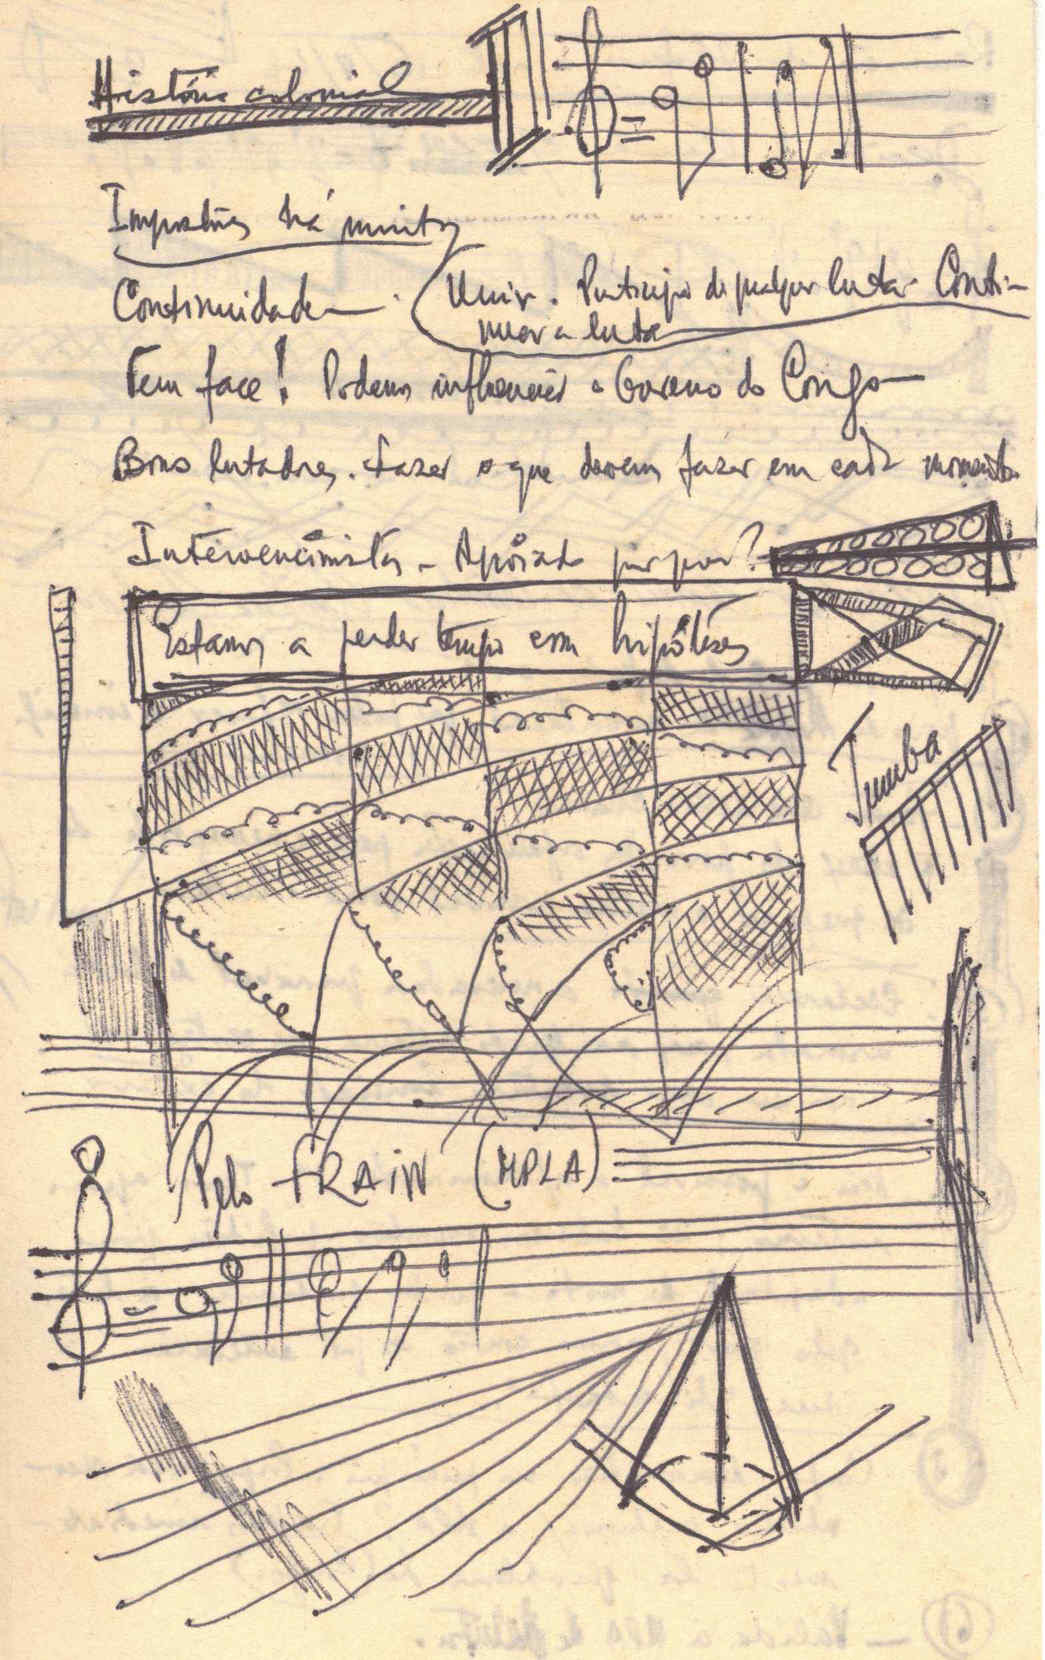 História colonial
Impostos há muito
Continuidade (Unir. Participo de qualquer luta. Conti-
nuar a luta
Tem face! Podemos influenciar o Governo do Congo
Bons lutadores. Fazer o que devem fazer em cada momento
Intervencionistas - Apoiado por
Estamos a perder tempo com hipóteses
Jumba
Pelo FRAIN (MPLA)